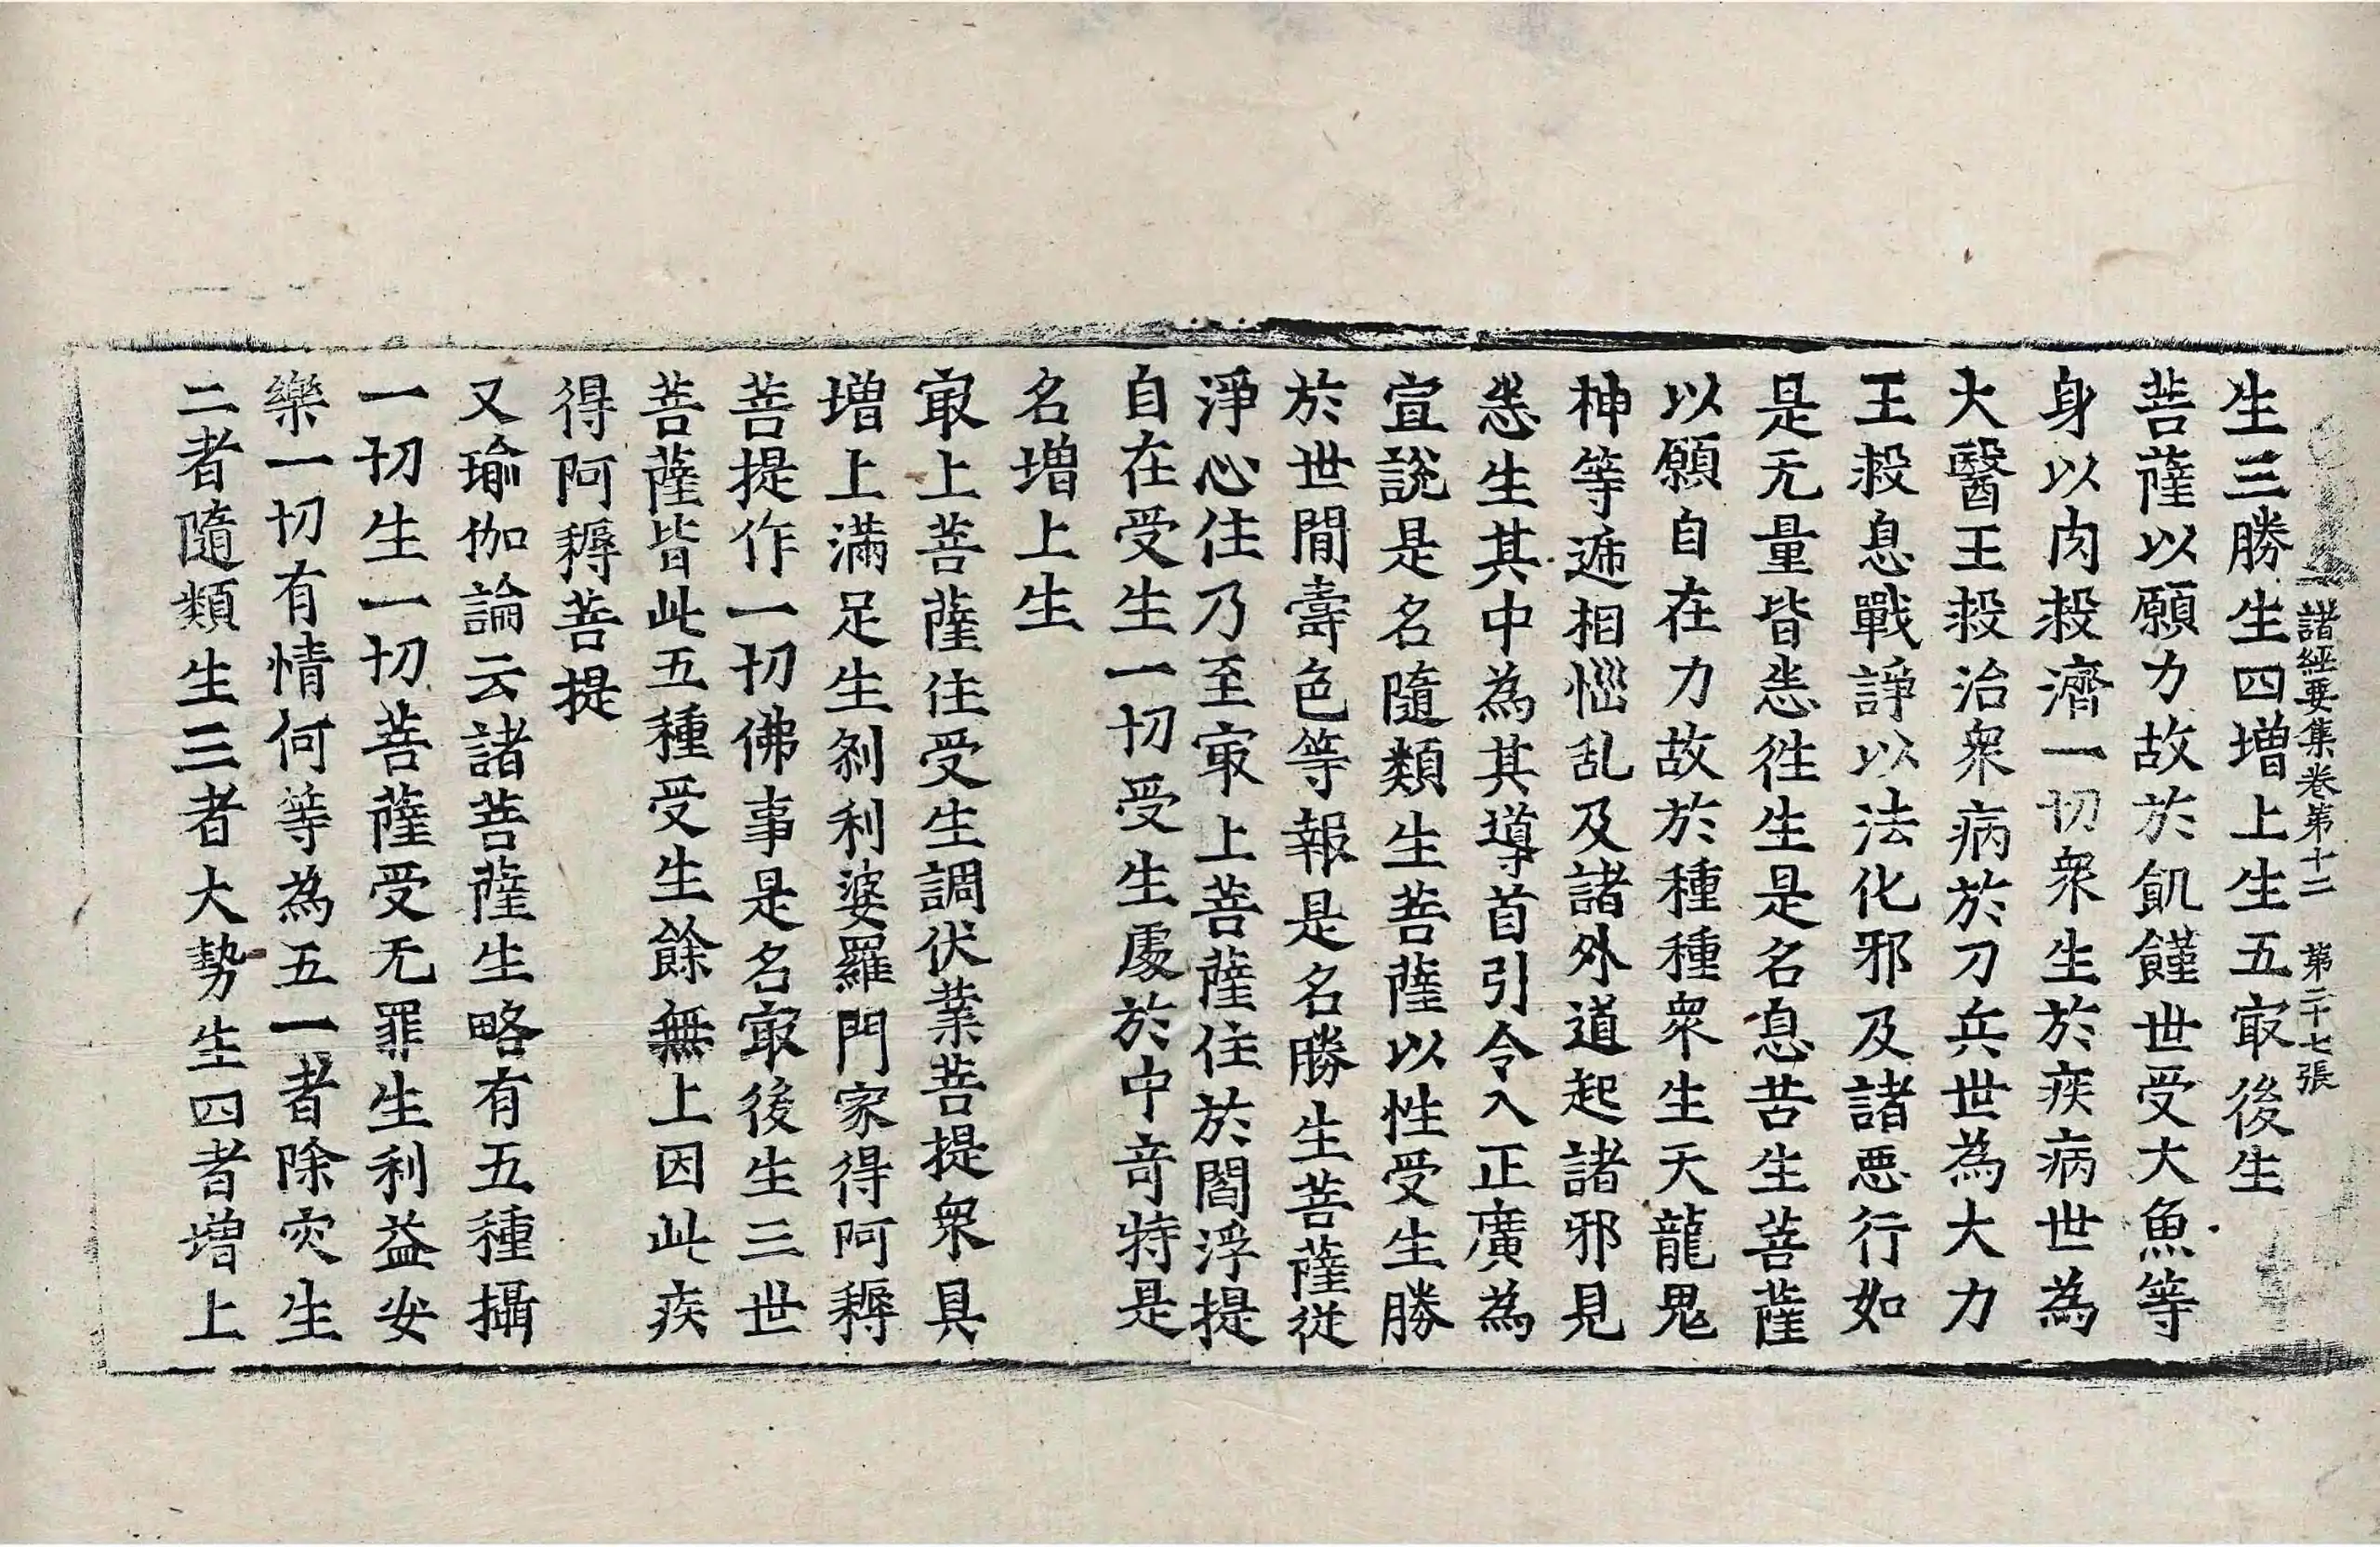 諸經要集卷第十二 第二十七張
生三勝生四增上生五㝡後生
菩薩以願力故於飢饉世受大魚等
身以肉救濟一切衆生於疾病世為
大醫王救治衆病於刀兵世為大力
王救息戰諍以法化邪及諸惡行如
是无量皆悉徃生是名息苦生菩薩
以願自在力故於種種衆生天龍鬼
神等遞相惱乱及諸外道起諸邪見
悉生其中為其導首引令入正廣為
宣說是名隨類生菩薩以性受生勝
於世間壽色等報是名勝生菩薩從
淨心住乃至㝡上菩薩住於閻浮提
自在受生一切受生處於中奇特是
名增上生
㝡上菩薩住受生調伏業菩提衆具
增上滿足生剎利婆羅門家得阿耨
菩提作一切佛事是名㝡後生三世
菩薩皆此五種受生餘無上因此疾
得阿耨菩提
又瑜伽論云諸菩薩生略有五種攝
一切生一切菩薩受无罪生利益安
樂一切有情何等為五一者除灾生
二者隨類生三者大勢生四者增上